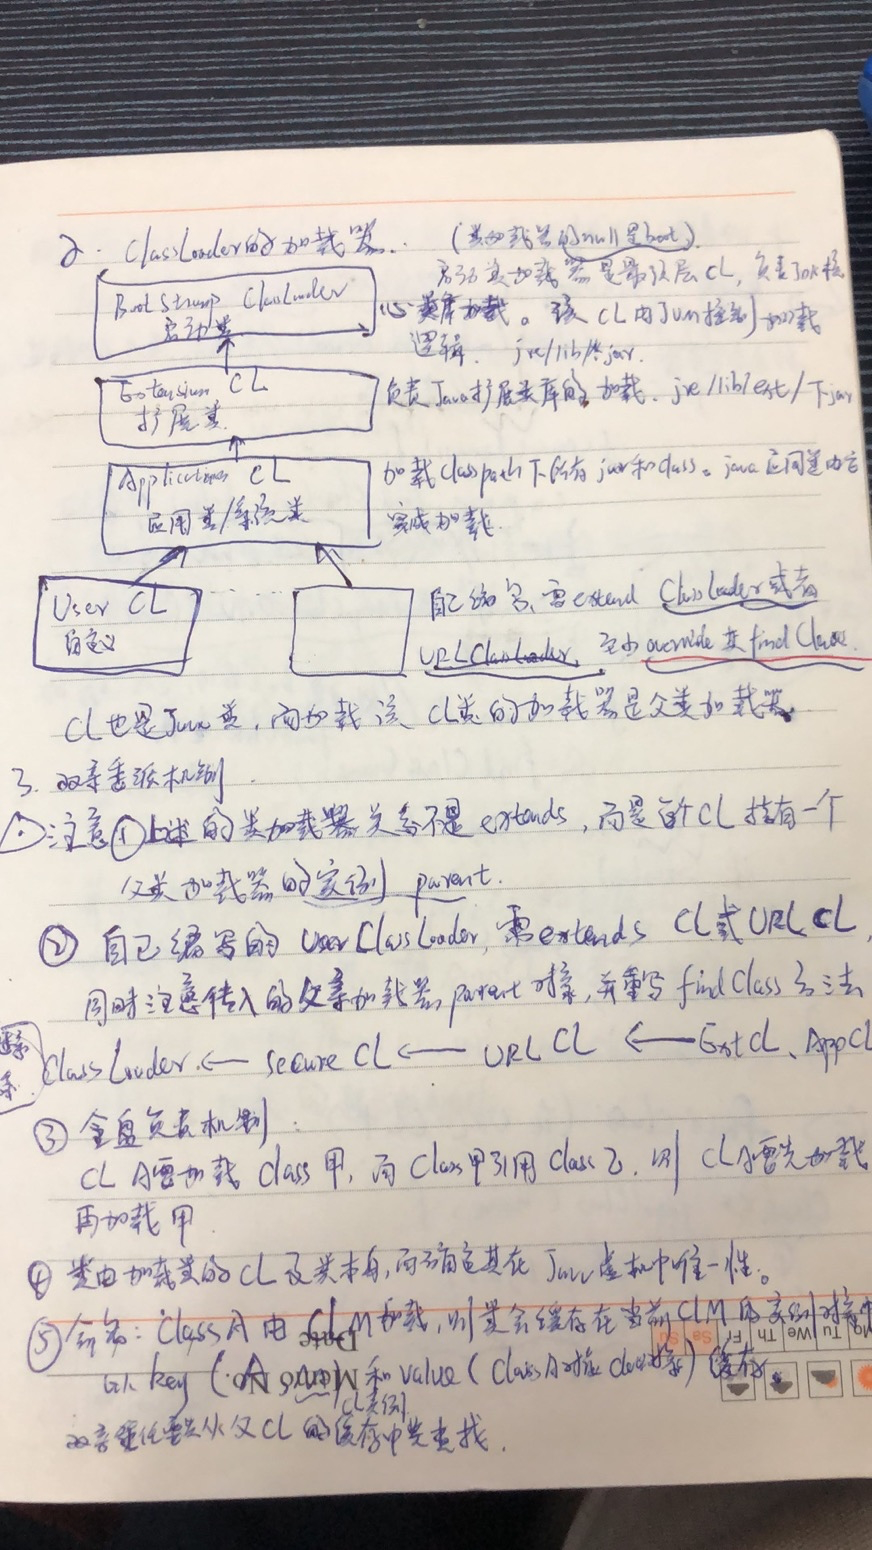 2. ClassLoader的加载器. (类加载器的null是boot).
BootStrap ClassLoader
启动类
启动类加载器是最顶层CL, 负责JDK核
心类库加载。该CL由JVM控制加载
逻辑. jre/lib/*.jar.
Extension CL
扩展类
负责Java扩展类库的加载. jre/lib/ext/下jar
Application CL
应用类/系统类
加载Classpath下所有jar和class。java应用类由它
完成加载.
User CL
自定义
自己编写, 需extend ClassLoader或者
URLClassLoader, 至少override类findClass.
CL也是Java类, 而加载该CL类的加载器是父类加载器.
3. 双亲委派机制.
注意①上述的类加载器关系不是extends, 而是每个CL持有一个
父类加载器的实例 parent.
② 自己编写的UserClassLoader, 需extends CL或URLCL,
同时注意传入的父亲加载器parent对象, 并重写findClass方法
ClassLoader ← secure CL ← URL CL ← ExtCL、AppCL
③ 全盘负责机制:
CL A需加载class甲, 而Class甲引用class乙, 则CL A需先加载
再加载甲
④ 类由加载类的CL及类本身, 而确定其在Java虚机中唯一性。
⑤ Class A由CLM加载, 则其会缓存在当前CLM的实例对象中
以key (A) 和value (Class A对应class对象) 缓存.
CL实例
双亲委任需先从父CL的缓存中先查找.
Date
Memo No.
Mo Tu We Th Fr Sa Su